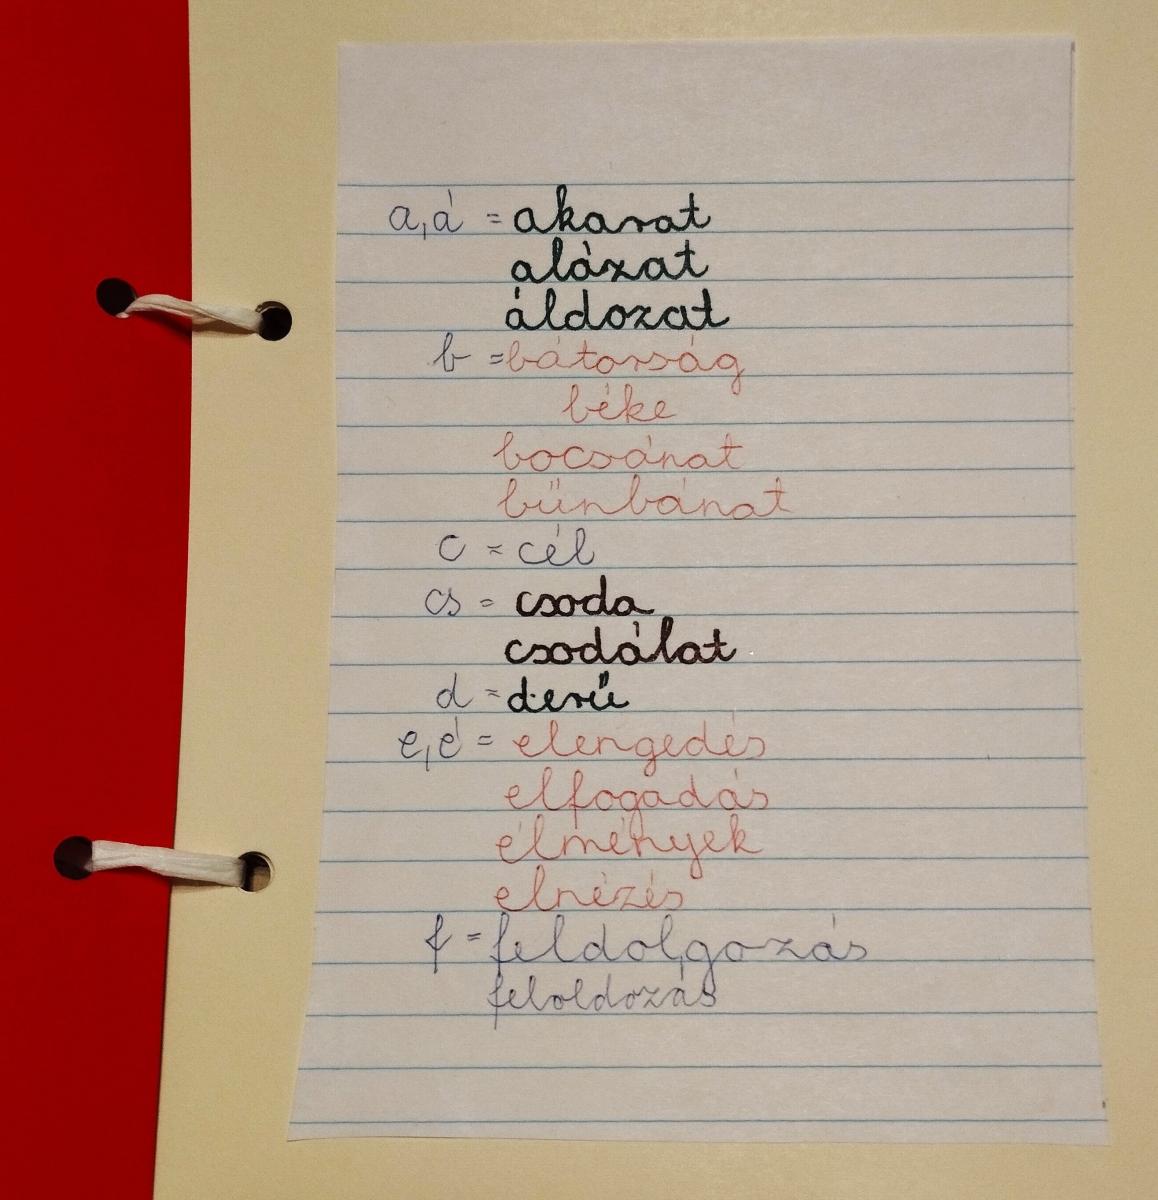 a,á = akarat
alázat
áldozat
b = bátorság
béke
bocsánat
bűnbánat
c = cél
cs = csoda
csodálat
d = derű
e,é = elengedés
elfogadás
élmények
elnézés
f = feldolgozás
feloldozás